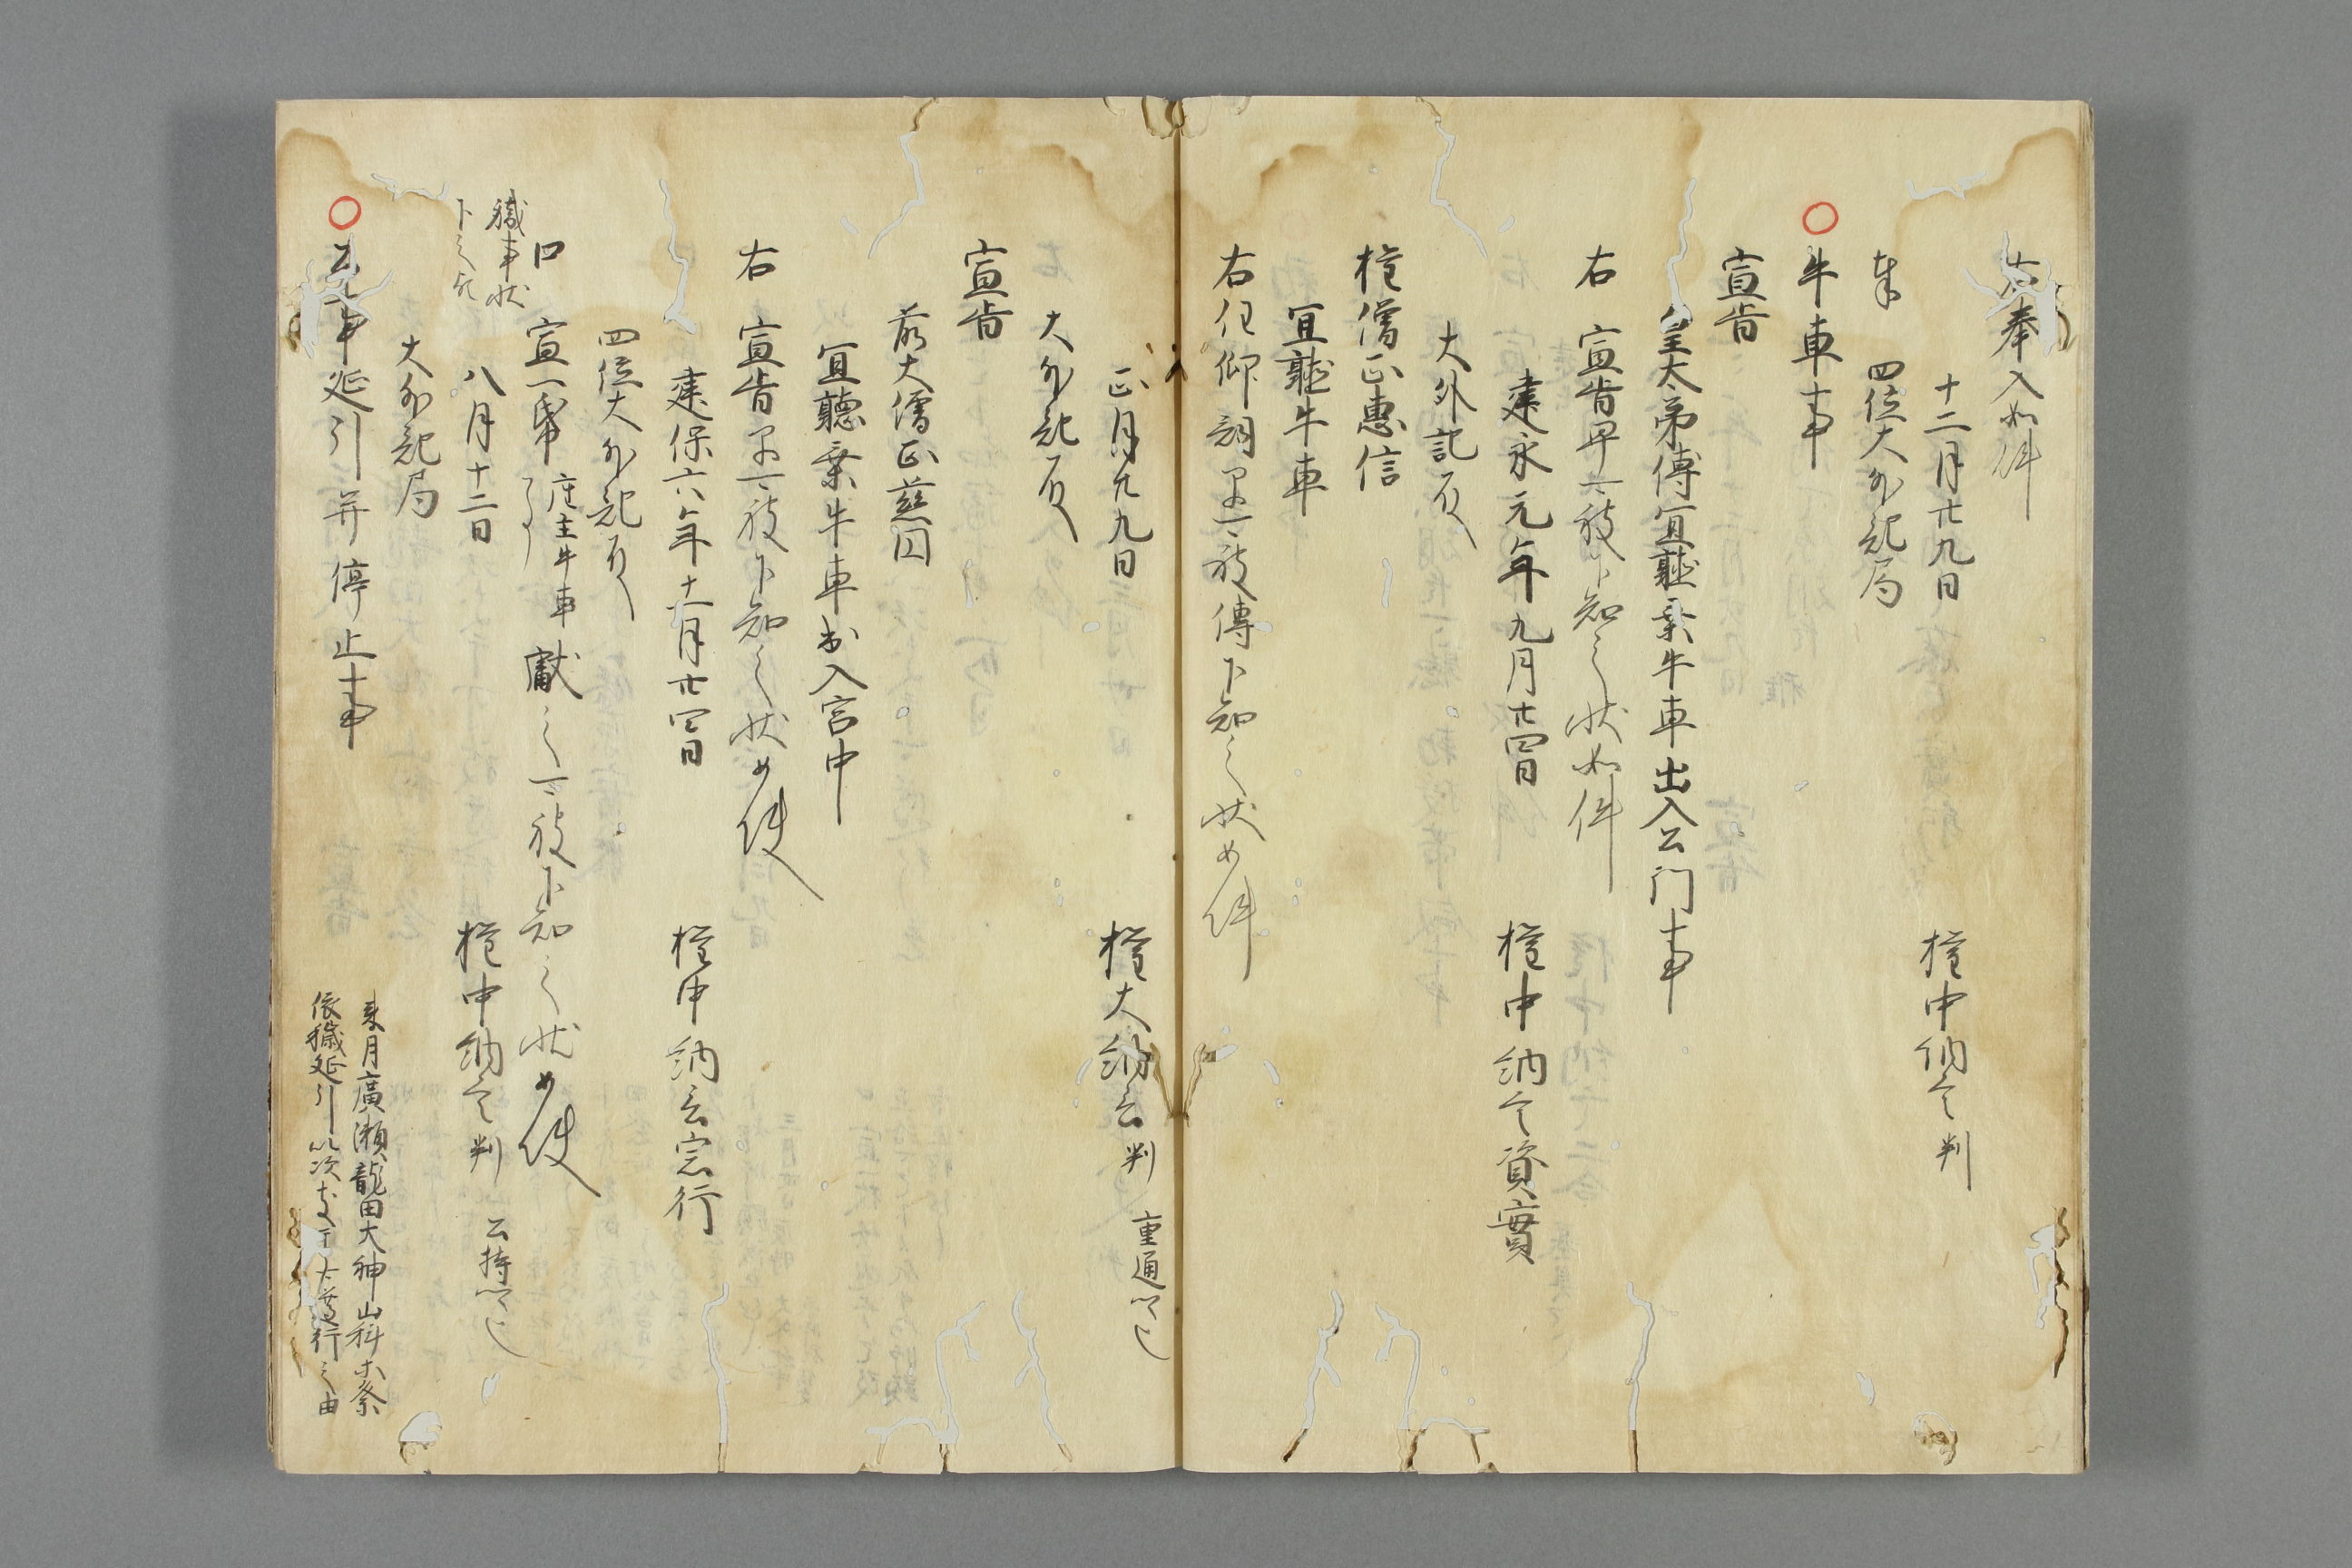 右奉入如件
十二月廿九日 権中納言判
奉 四位大外記局
○牛車事
宣旨
皇太弟傅宜聴乗牛車出入公門事
右 宣旨早可被下知之状如件
建永元年九月廿四日 権中納言資實
大外記殿
権僧正惠信
宜聴牛車
右任仰詞早可被傳下知之状如件
正月廿九日 権大納言判 重通卿也
大外記殿
宣旨
前大僧正慈円
宜聴乗牛車出入宮中
右 宣旨早可被下知之状如件
建保六年十一月廿四日 権中納言宗行
四位大外記殿
口 宣一帋 座主牛車事 献之可被下知之状如件
職事状
下之歟
八月十二日 権中納言判 公持卿也
大外記局
○公事延引并停止事
来月廣瀬龍田大神山科等祭
依穢延引以次支干可遂行之由